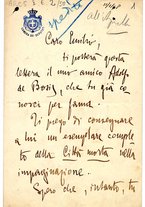 Caro Emilio,
ti porterà questa
lettera il mio amico Adolfo
de Bosis, che tu già co
nosci per fama.
Ti prego di consegnare
a lui un esemplare comple
to della Città morta nella
impaginazione.
Spero che, intanto, tu